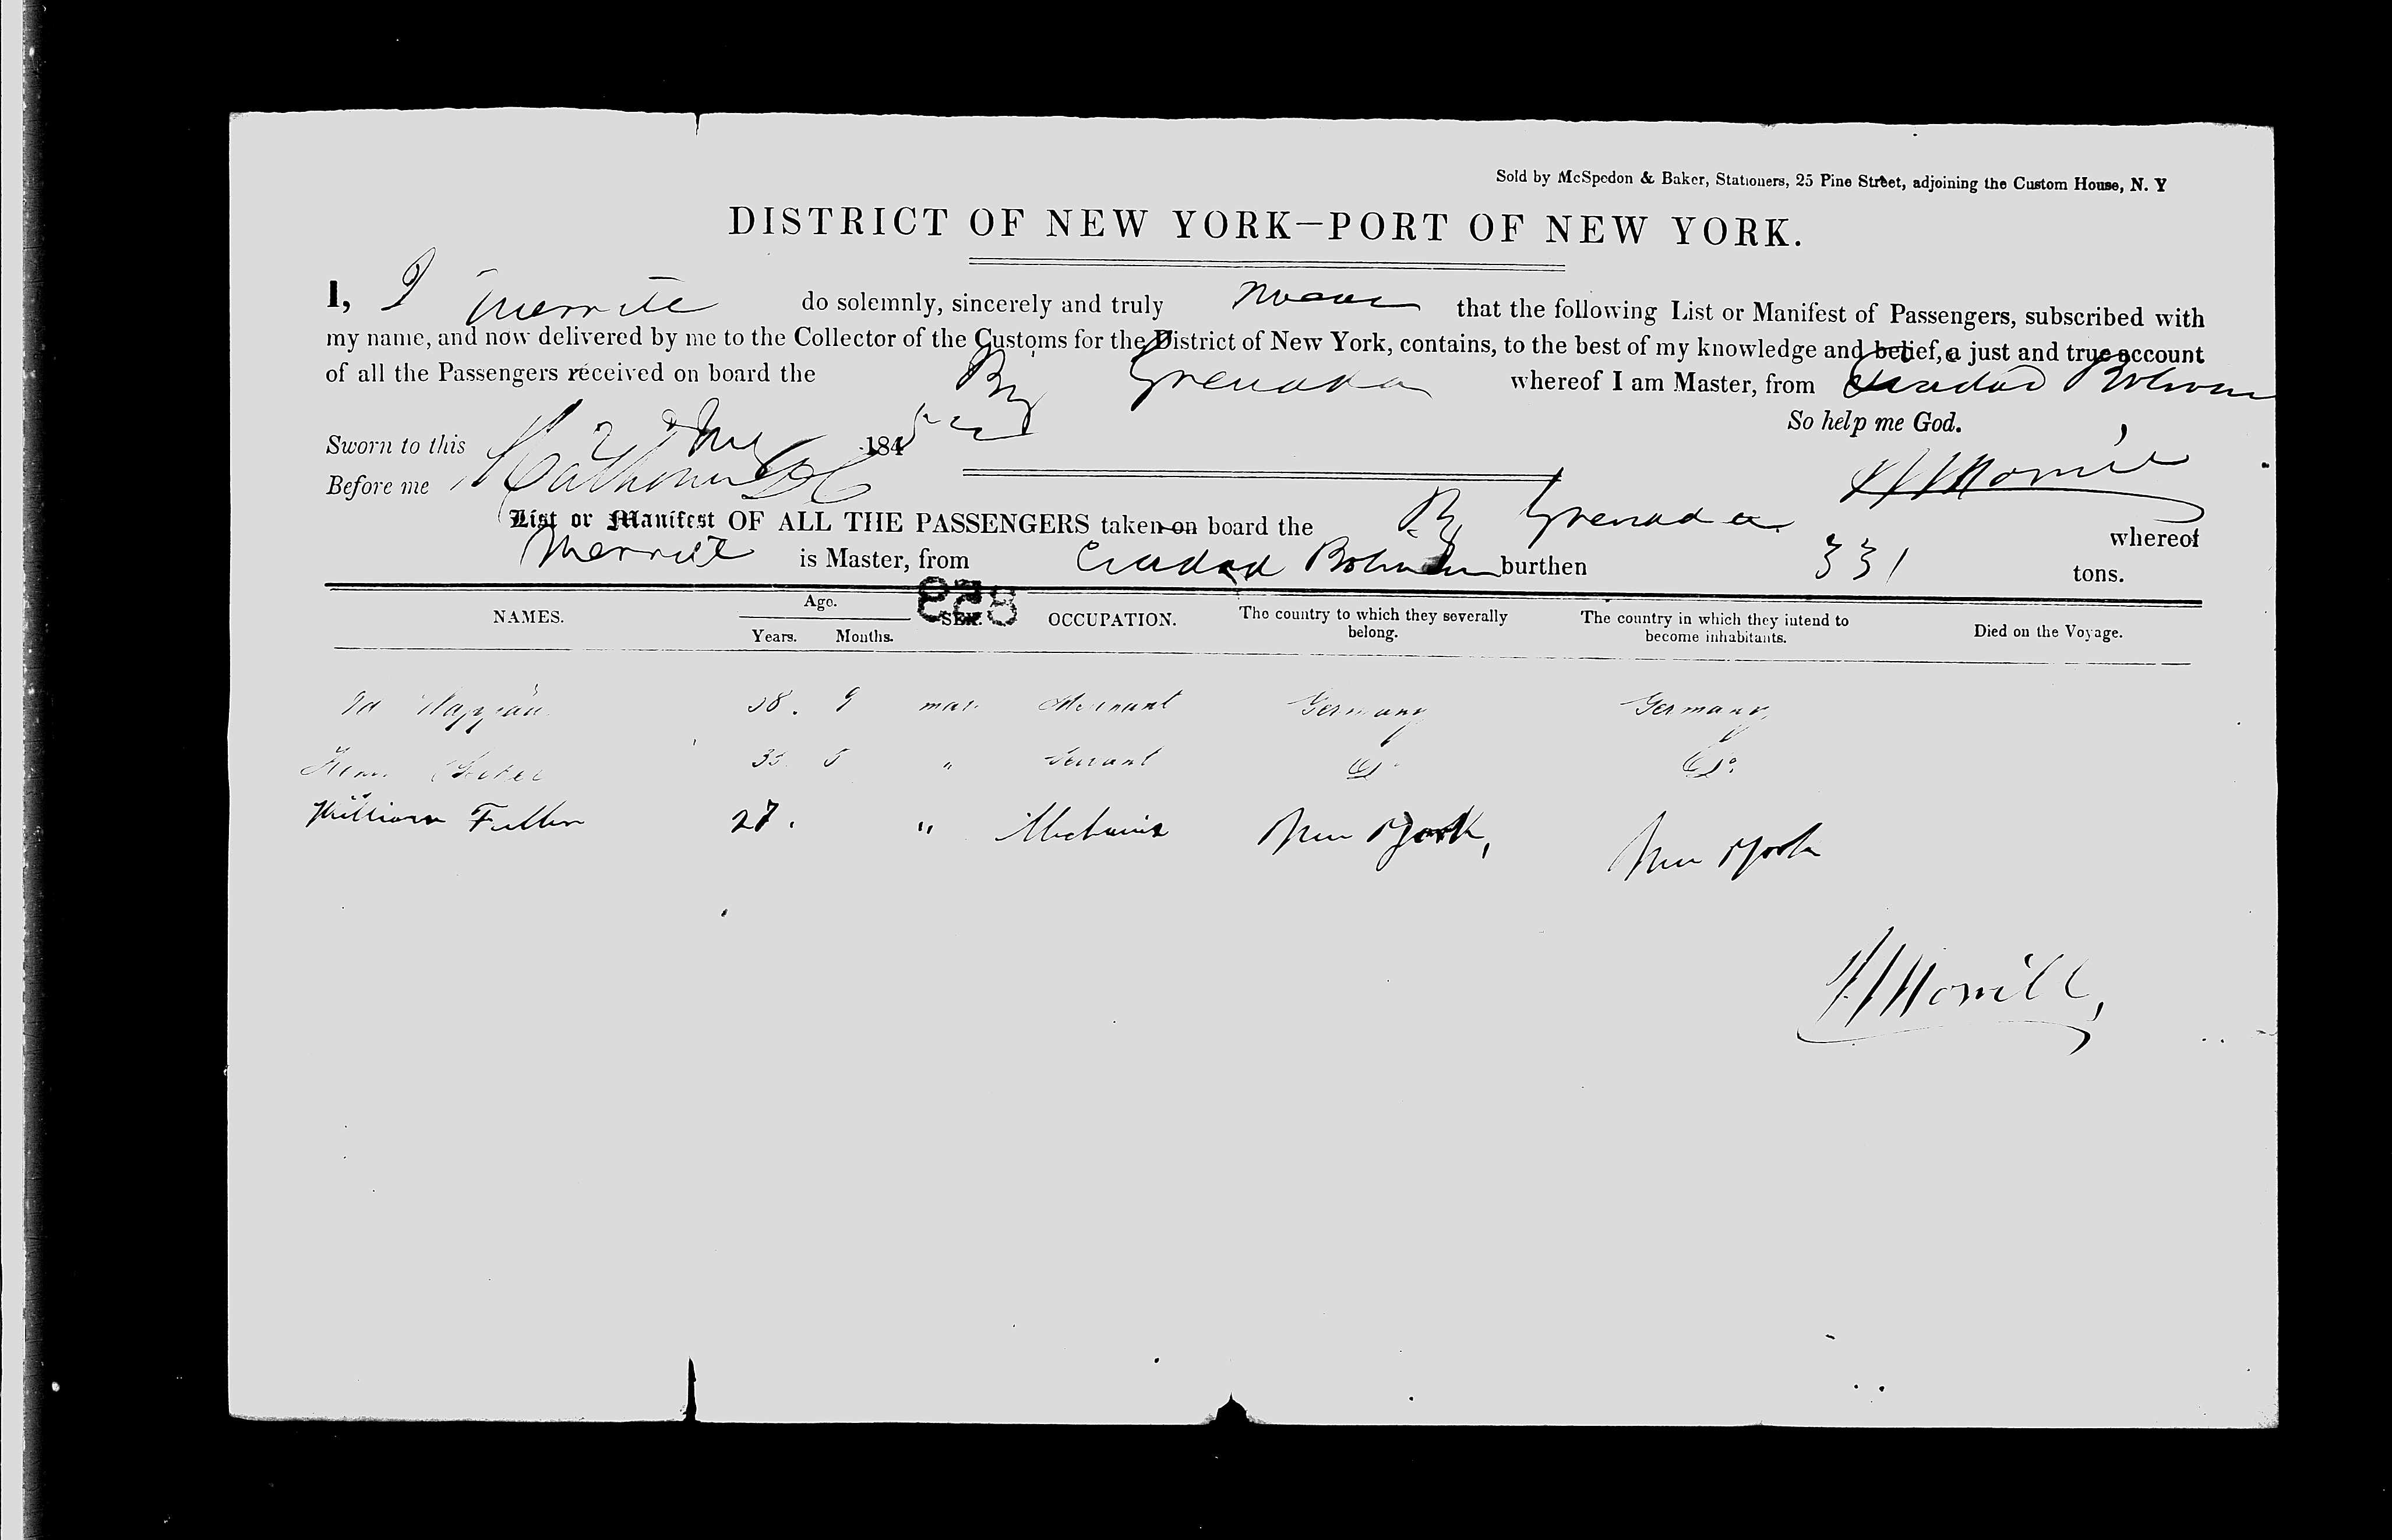 Sold by McSpedon & Baker, Stationers, 25 Pine Street, adjoining the Custom House, N. Y
DISTRICT OF NEW YORK—PORT OF NEW YORK.
I, J Merrill do solemnly, sincerely and truly swear that the following List or Manifest of Passengers, subscribed with
my name, and now delivered by me to the Collector of the Customs for the District of New York, contains, to the best of my knowledge and belief, a just and true account
of all the Passengers received on board the Bg Grenada whereof I am Master, from Ciudad Bolivar
So help me God.
Sworn to this 184
Before me
List or Manifest OF ALL THE PASSENGERS taken on board the Bg Grenada whereof
Merrill is Master, from Ciudad Bolivar burthen 331 tons.
859
NAMES. Age. SEX. OCCUPATION. The country to which they severally belong. The country in which they intend to become inhabitants. Died on the Voyage.
Years. Months.
38. 9 Germany Germany,
5 " Servant Do Do
William Fuller 27. " Mechanic New York, New York
Morrill,